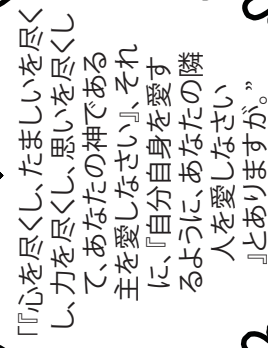 「『心を尽くし、たましいを尽く
し、力を尽くし、思いを尽くし
て、あなたの神である
主を愛しなさい』、それ
に、『自分自身を愛す
るように、あなたの隣
人を愛しなさい
』とありますが。”